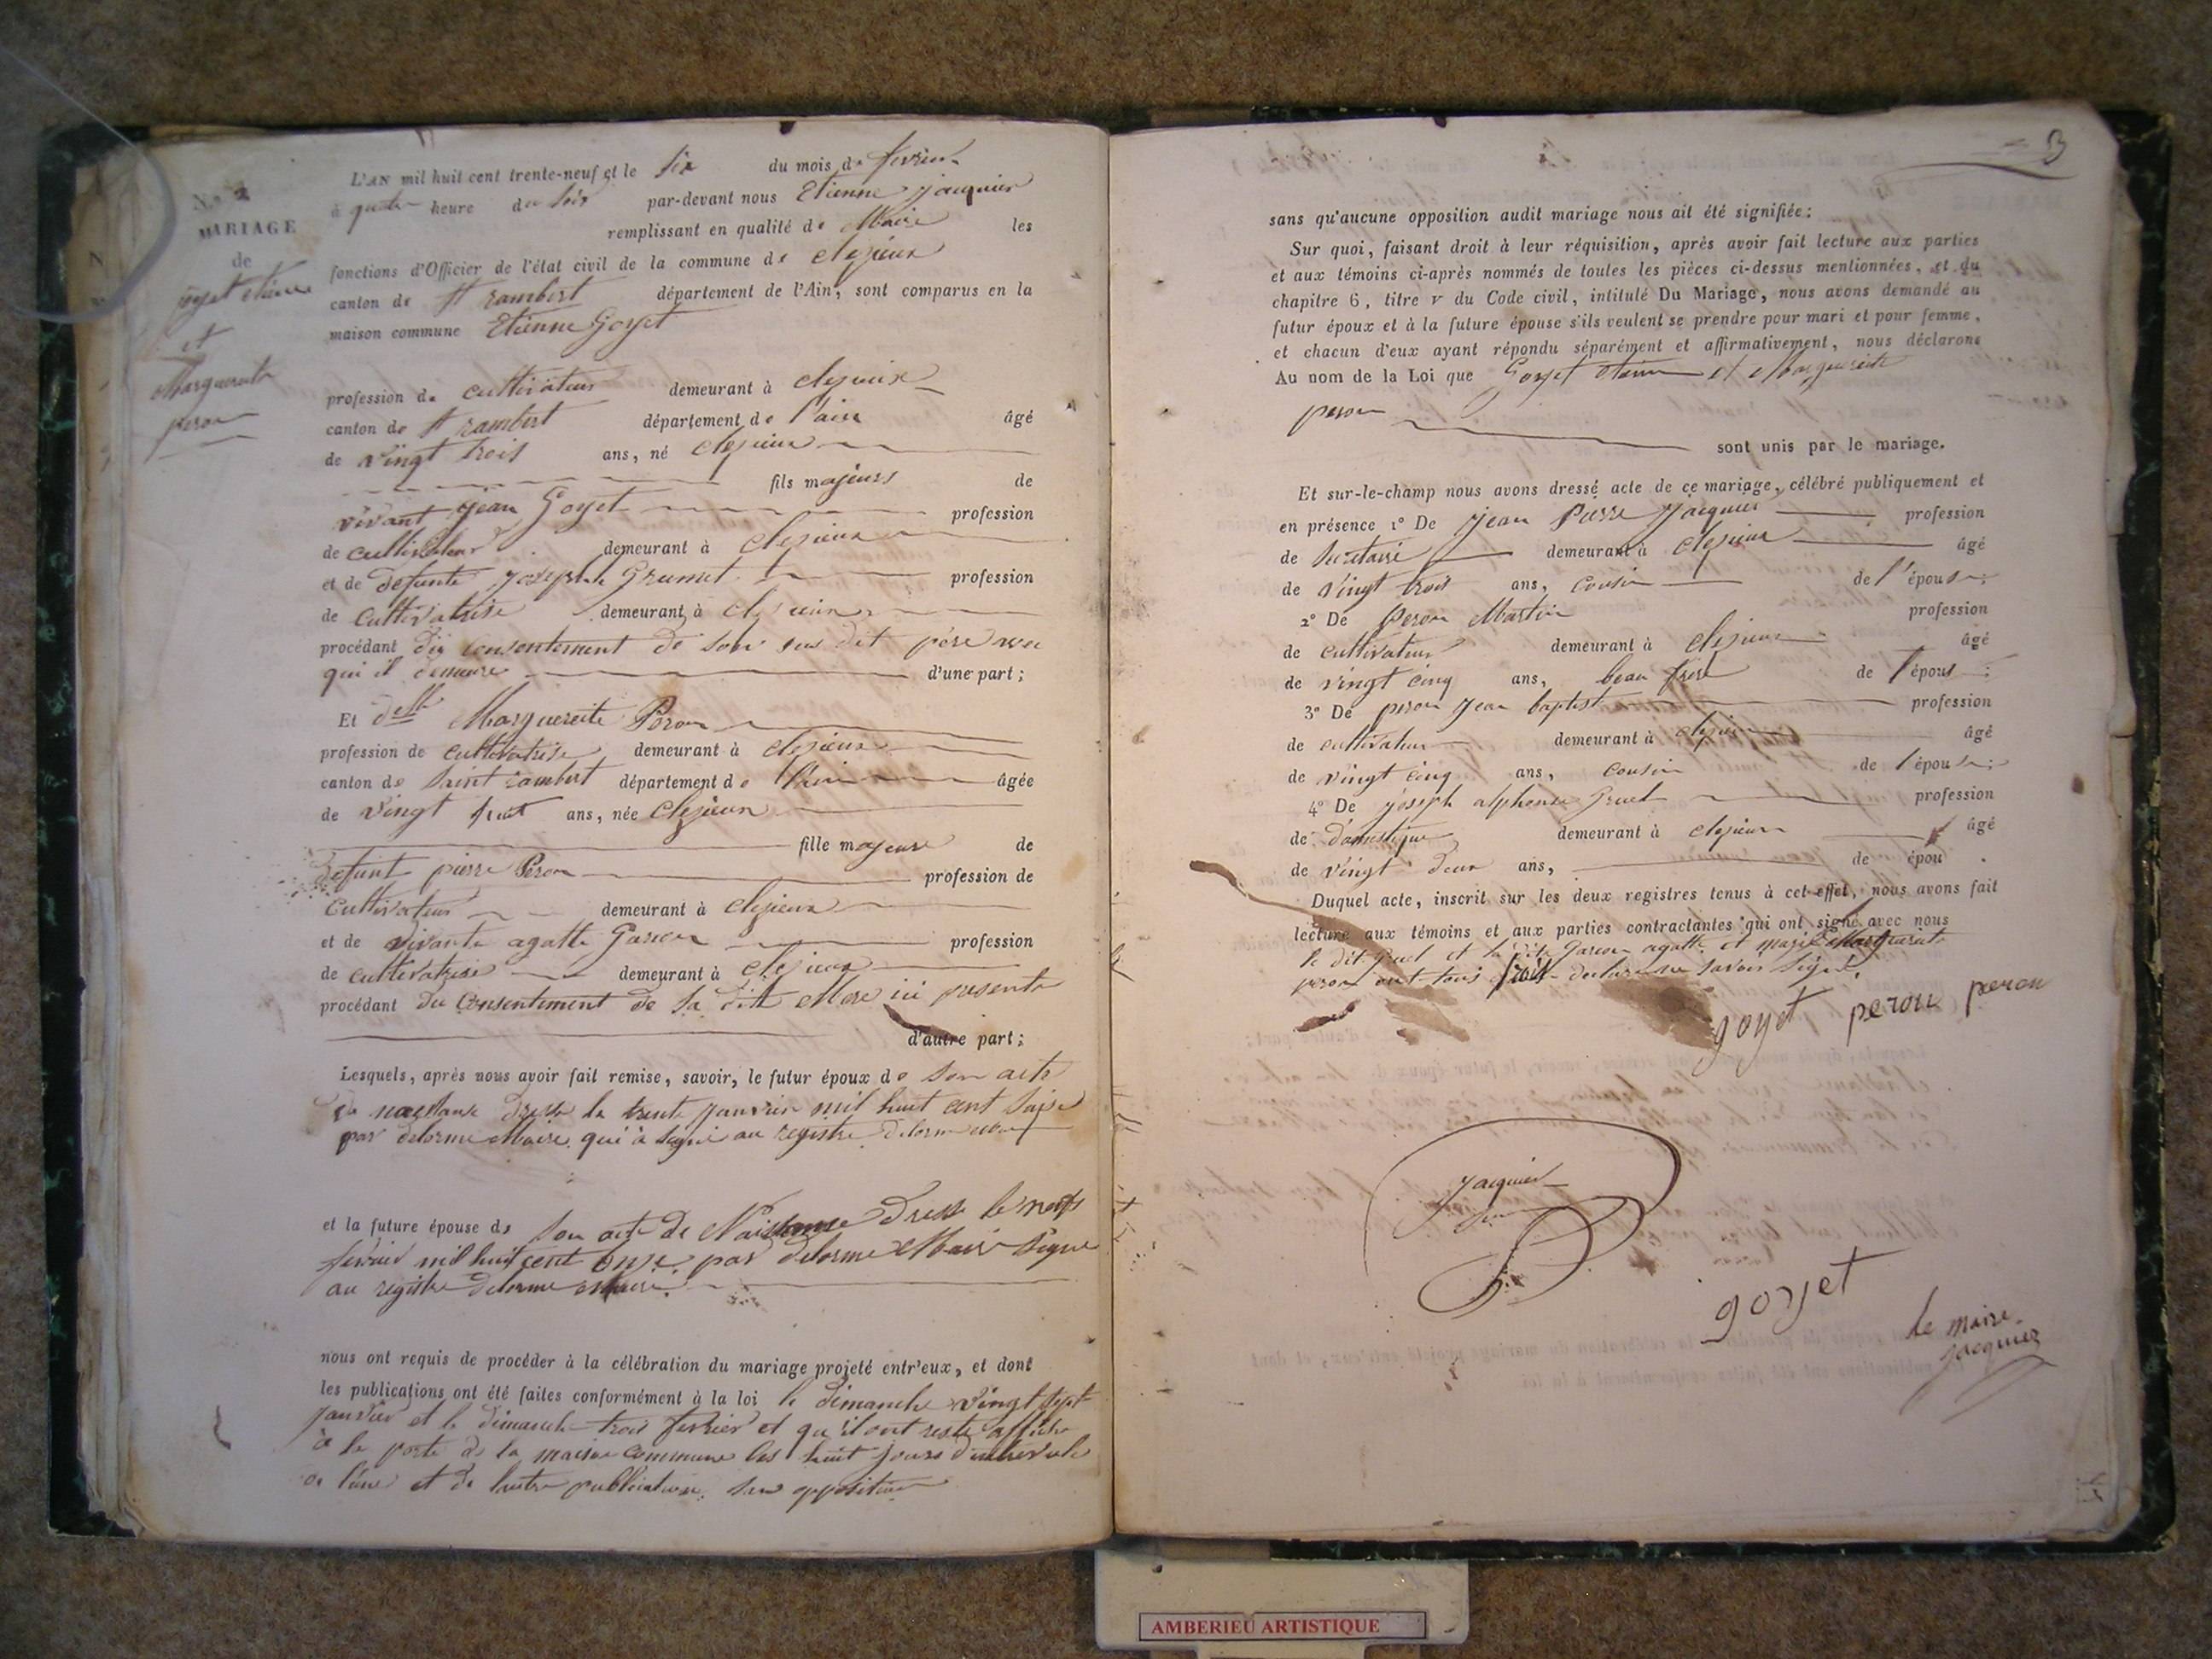 N.o 2
MARIAGE
de
goyet etienne
et
Marguerite
peron
L'AN mil huit cent trente-neuf et le six du mois de fevrier
à quatre heure du soir par-devant nous Etienne Jacquier
remplissant en qualité de Maire les
fonctions d'Officier de l'état civil de la commune de clezieux
canton de St rambert département de l'Ain, sont comparus en la
maison commune Etienne Goyet
profession de cultivateur demeurant à clezieux
canton de St rambert département de l'ain âgé
de vingt trois ans, né clezieux
fils majeurs de
vivant jean Goyet profession
de cultivateur demeurant à clezieux
et de defunte josephte Grumet profession
de cultivatrise demeurant à clezieux
procédant du consentement de son sus dit père avec
qui il demeure d'une part;
Et delle Marguereite Peron
profession de cultivatrise demeurant à clezieux
canton de Saint rambert département de l'ain âgée
de vingt huit ans, née clezieux
fille majeure de
defunt pierre Peron profession de
cultivateur demeurant à clezieux
et de vivante agatte Garson profession
de cultivatrise demeurant à clezieux
procédant du consentement de sa dite Mere ici presente
d'autre part;
Lesquels, après nous avoir fait remise, savoir, le futur époux de son acte
de naissanse dresse le trente janvier mil huit cent saize
par delorme Maire qui à signé au registre delorme
et la future épouse de son acte de Naissanse dresse le neuf
fevrier mil huit cent onze par delorme Maire signe
au registre delorme Maire
nous ont requis de procéder à la célébration du mariage projeté entr'eux, et dont
les publications ont été faites conformément à la loi le dimanche vingt sept
janvier et le dimanche trois fevrier et qu'il ont reste affiche
à la porte de la maison commune les huit jours d'intervale
de l'une et de lautre publication sans opposition
3
sans qu'aucune opposition audit mariage nous ait été signifiée;
Sur quoi, faisant droit à leur réquisition, après avoir fait lecture aux parties
et aux témoins ci-après nommés de toutes les pièces ci-dessus mentionnées, et du
chapitre 6, titre v du Code civil, intitulé Du Mariage, nous avons demandé au
futur époux et à la future épouse s'ils veulent se prendre pour mari et pour femme,
et chacun d'eux ayant répondu séparément et affirmativement, nous déclarons
Au nom de la Loi que Goyet etienne et Marguereite
peron
sont unis par le mariage.
Et sur-le-champ nous avons dressé acte de ce mariage, célébré publiquement et
en présence 1° De jean Pierre Jacquier profession
de Secretaire demeurant à clezieux âgé
de vingt trois ans, cousin de l'épouse;
2° De Peron Martin profession
de cultivateur demeurant à clezieux âgé
de vingt cinq ans, beau frere de l'épous;
3° De peron jean baptist profession
de cultivateur demeurant à clezieux âgé
de vingt cinq ans, cousin de l'épouse;
4° De joseph alphonse Gruel profession
de domestique demeurant à clezieux âgé
de vingt deux ans, de épou
Duquel acte, inscrit sur les deux registres tenus à cet effet, nous avons fait
lecture aux témoins et aux parties contractantes qui ont signé avec nous
le dit Gruel et la dite Garson agatte et Marguerite
peron ont tous trois declare ne savoir signé.
goyet peron peron
Jacquier
goyet
le maire
jacquier
AMBERIEU ARTISTIQUE